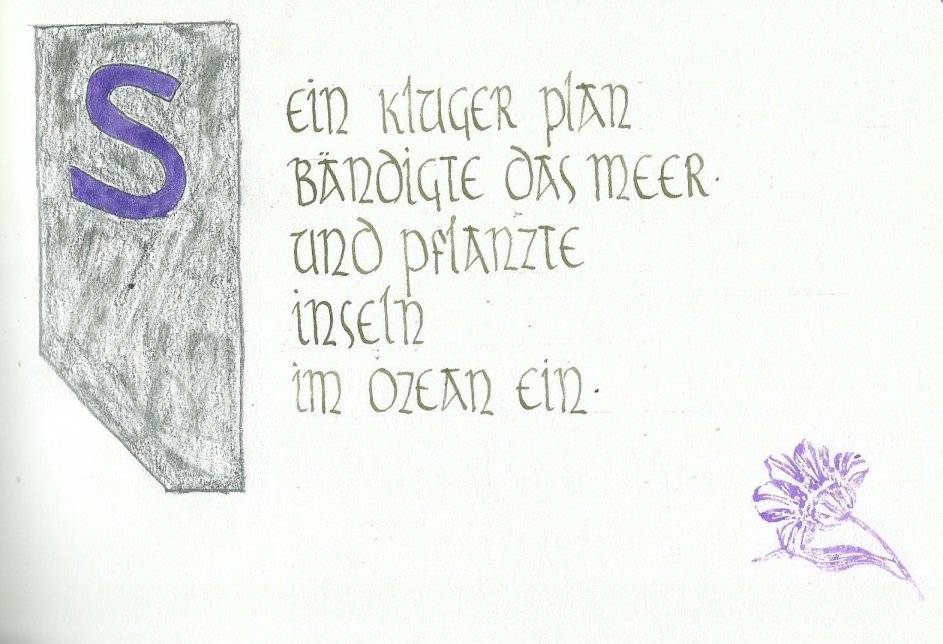 Sein kluger Plan
bändigte das Meer.
und pflanzte
inseln
im Ozean ein.